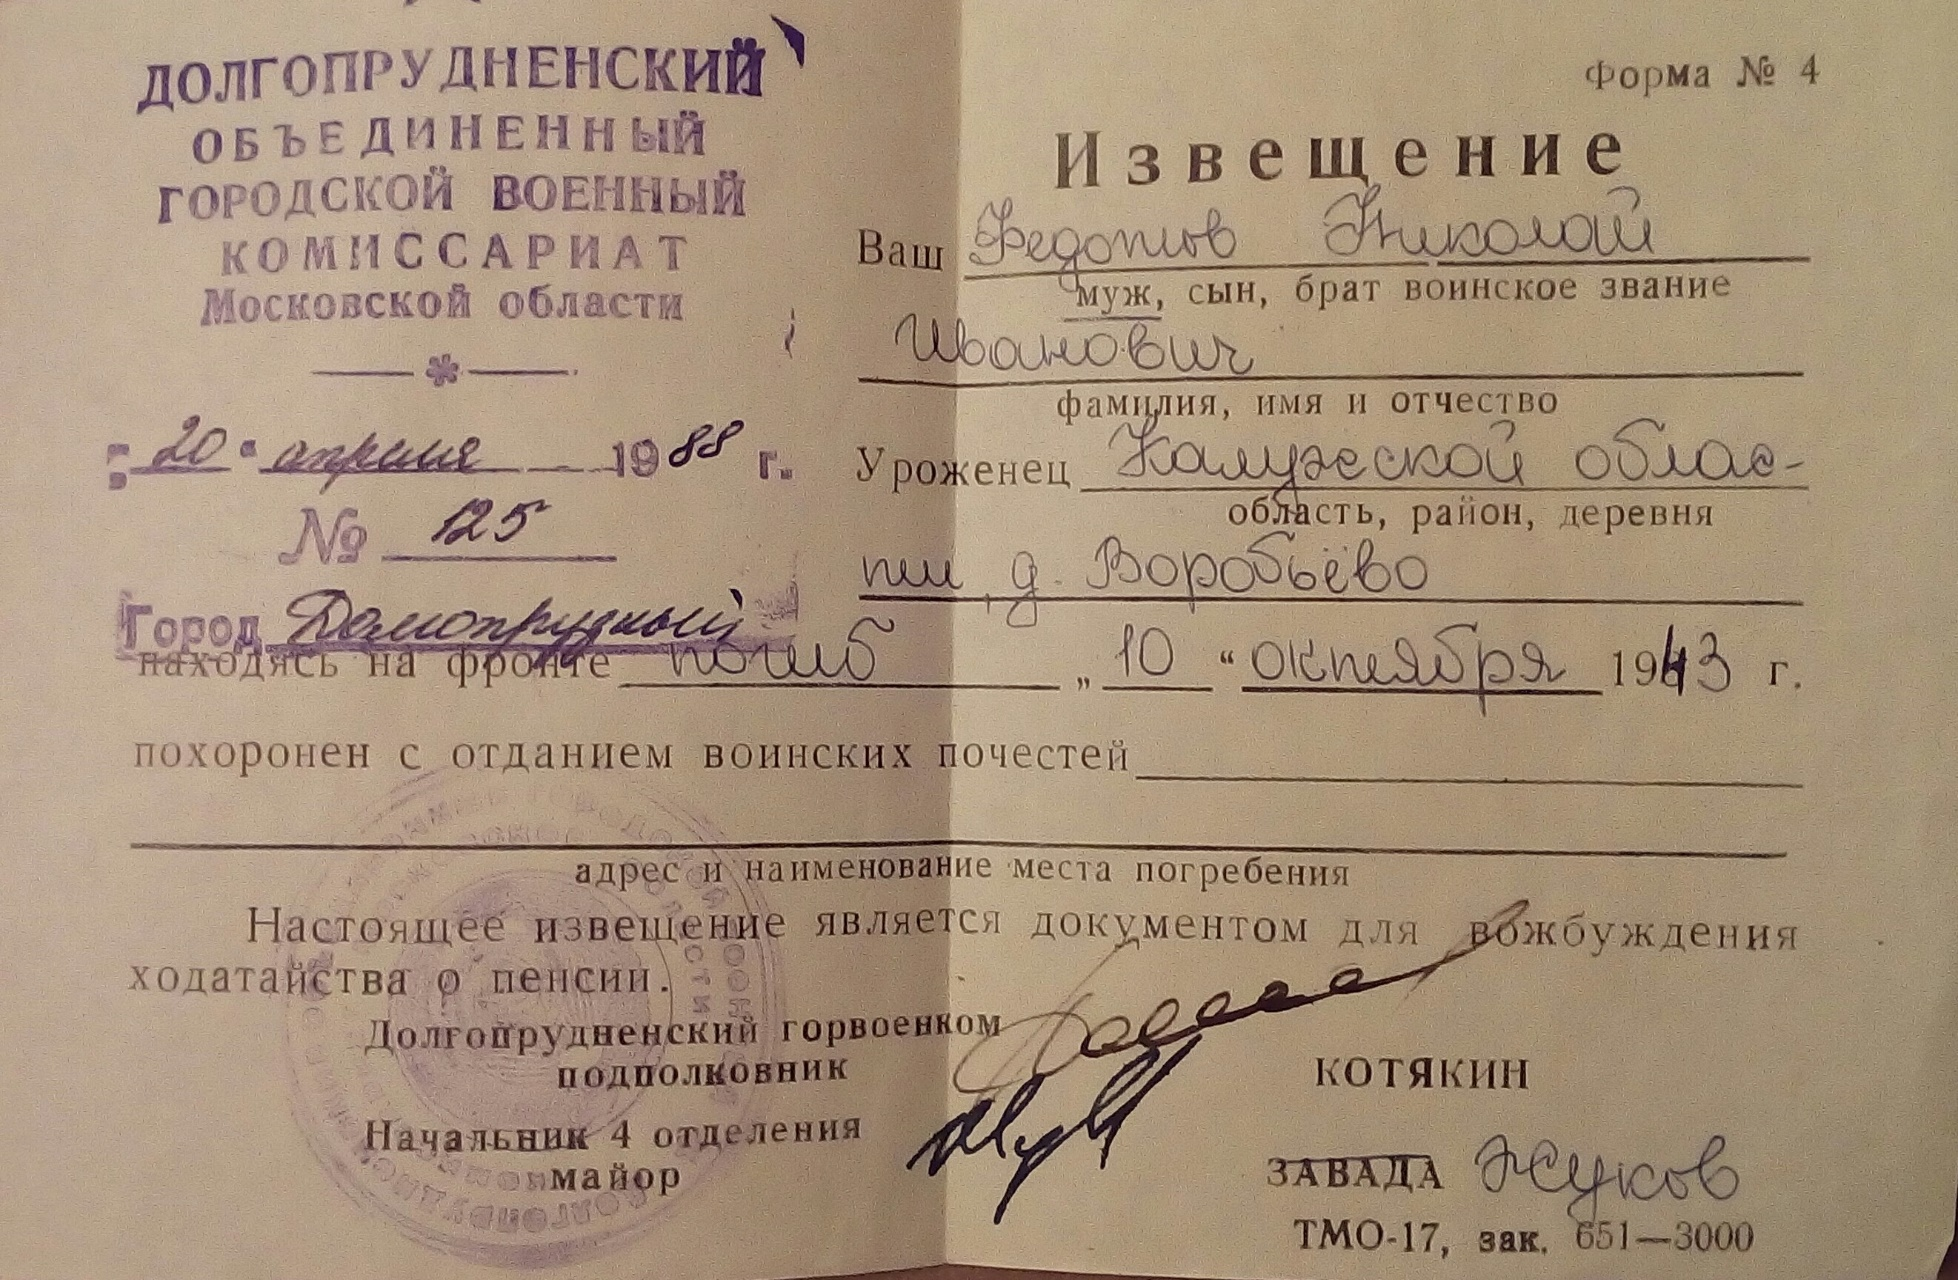 ДОЛГОПРУДНЕНСКИЙ
ОБЪЕДИНЕННЫЙ
ГОРОДСКОЙ ВОЕННЫЙ
КОМИССАРИАТ
Московской области
„20“ апреля 1988 г.
№ 125
Город Долгопрудный
Форма № 4
Извещение
Ваш Федотов Николай
муж, сын, брат воинское звание
Иванович
фамилия, имя и отчество
Уроженец Калужской облас-
область, район, деревня
ти, д. Воробьёво
находясь на фронте погиб „10“ октября 1943 г.
похоронен с отданием воинских почестей
адрес и наименование места погребения
Настоящее извещение является документом для вожбуждения
ходатайства о пенсии.
Долгопрудненский горвоенком
подполковник
КОТЯКИН
Начальник 4 отделения
майор
ЗАВАДА Жуков
ТМО-17, зак. 651—3000